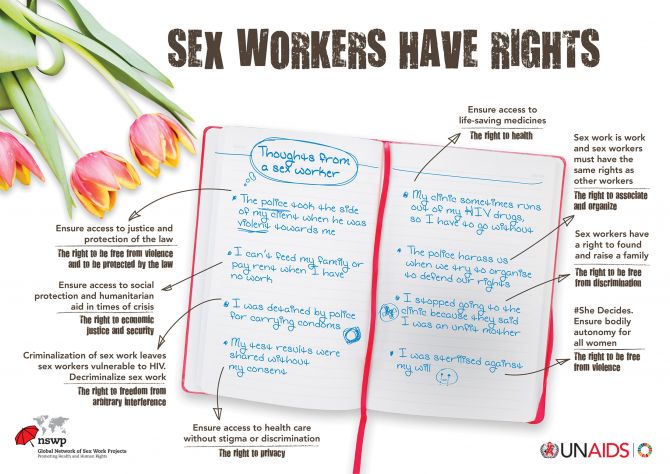 SEX WORKERS HAVE RIGHTS
Thoughts from
a sex worker
The police took the side
of my client when he was
violent towards me
I can't feed my family or
pay rent when I have
no work
I was detained by police
for carrying condoms
My test results were
shared without
my consent
My clinic sometimes runs
out of my HIV drugs,
so I have to go without
The police harass us
when we try to organise
to defend our rights
I stopped going to the
clinic because they said
I was an unfit mother
I was sterilised against
my will
Ensure access to justice and
protection of the law
The right to be free from violence
and to be protected by the law
Ensure access to social
protection and humanitarian
aid in times of crisis
The right to economic
justice and security
Criminalization of sex work leaves
sex workers vulnerable to HIV.
Decriminalize sex work
The right to freedom from
arbitrary interference
Ensure access to health care
without stigma or discrimination
The right to privacy
Ensure access to
life-saving medicines
The right to health
Sex work is work
and sex workers
must have the
same rights as
other workers
The right to associate
and organize
Sex workers have
a right to found
and raise a family
The right to be free
from discrimination
#She Decides.
Ensure bodily
autonomy for
all women
The right to be free
from violence
nswp
Global Network of Sex Work Projects
Promoting Health and Human Rights
UNAIDS